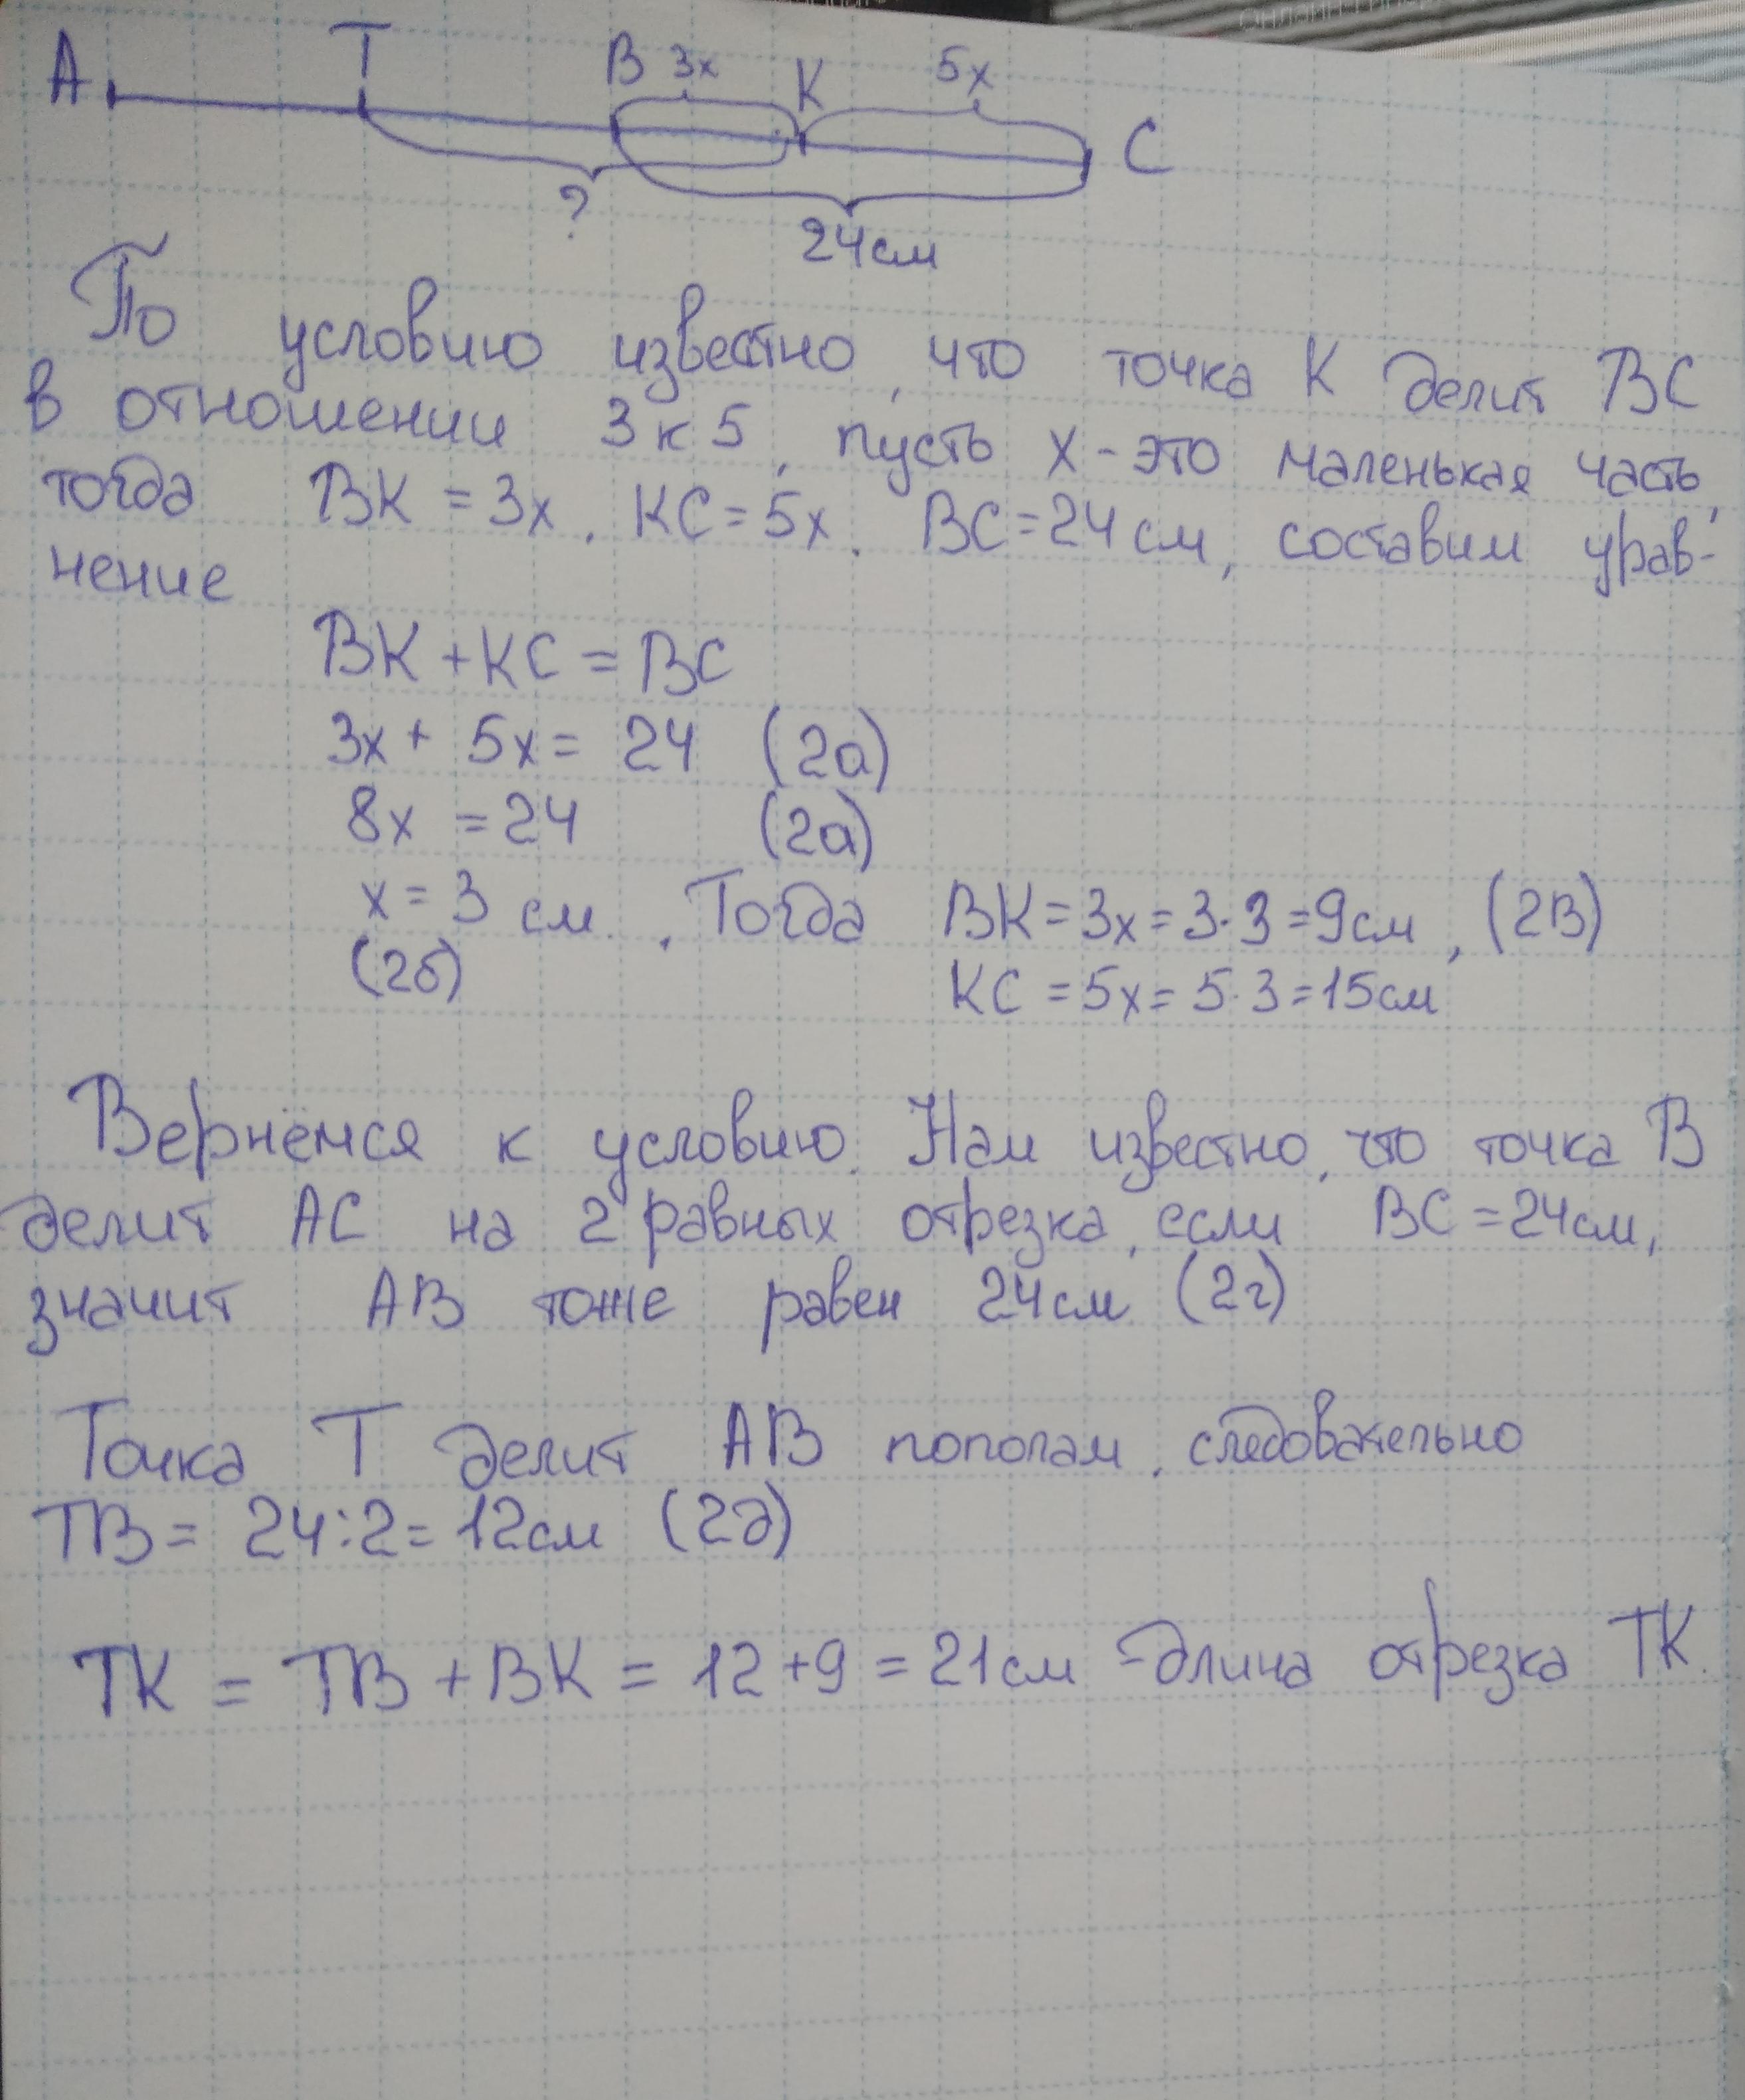 А Т В 3х К 5х С
?
24см
По условию известно, что точка К делит ВС
в отношении 3 к 5, пусть х - это маленькая часть,
тогда ВК = 3х, КС = 5х. ВС = 24 см, составим урав-
нение
ВК + КС = ВС
3х + 5х = 24 (2а)
8х = 24 (2а)
х = 3 см. Тогда ВК = 3х = 3·3 = 9см, (2В)
(2б) КС = 5х = 5·3 = 15см
Вернёмся к условию. Нам известно, что точка В
делит АС на 2 равных отрезка, если ВС = 24см,
значит АВ тоже равен 24см (2г)
Точка Т делит АВ пополам, следовательно
ТВ = 24:2 = 12см (2д)
ТК = ТВ + ВК = 12 + 9 = 21см - длина отрезка ТК.